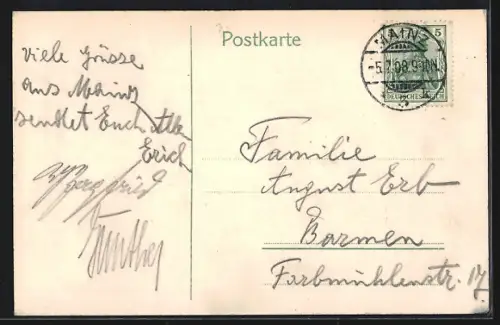 Postkarte
Viele Grüsse
aus Mainz
sendet Euch Allen
Erich
Günther
MAINZ
5.7.09.9-10N.
5
DEUTSCHES REICH
Familie
August Erb
Barmen
Farbmühlenstr. 17